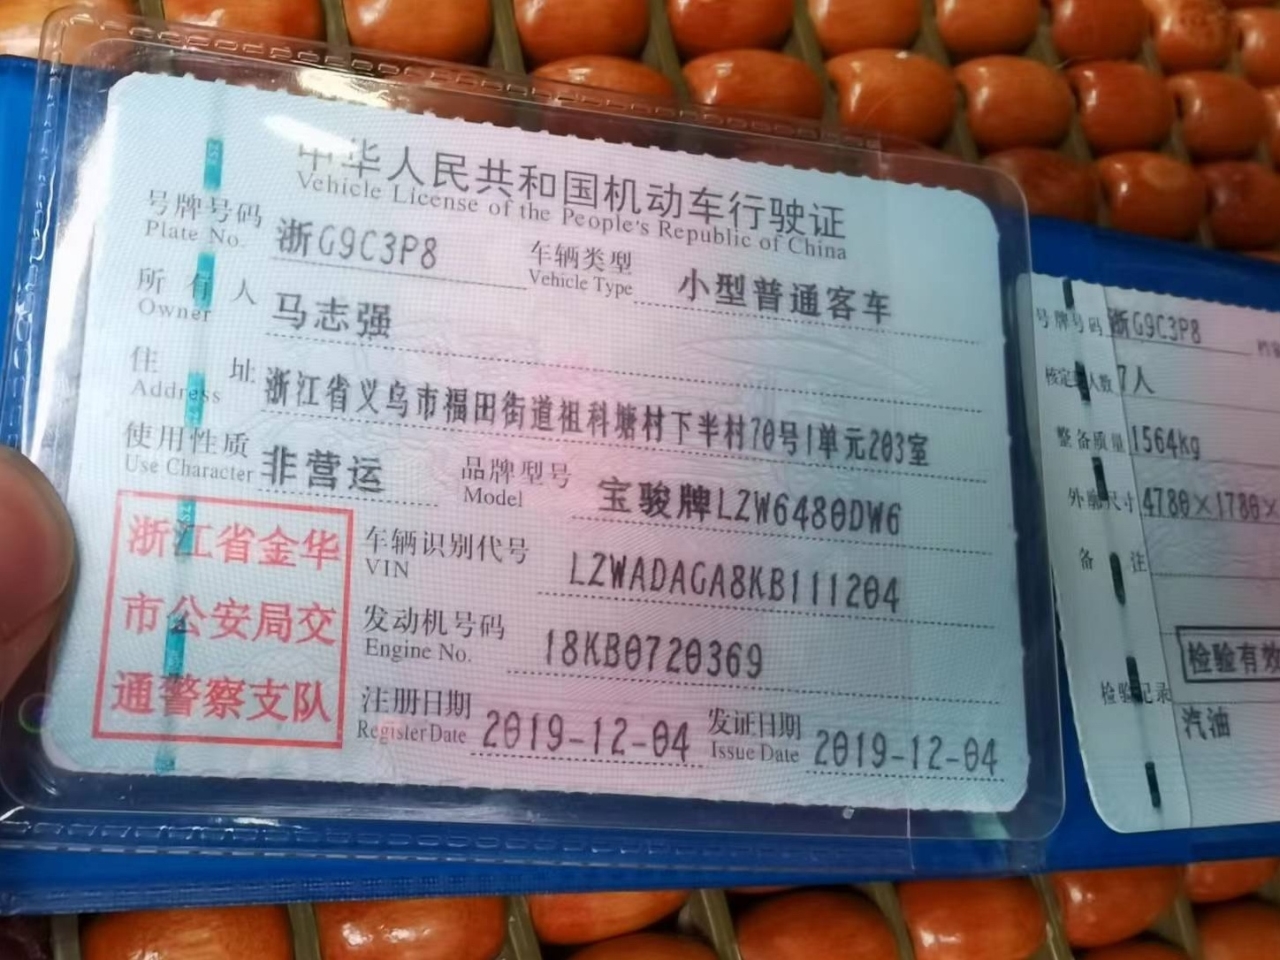 中华人民共和国机动车行驶证
Vehicle License of the People's Republic of China
号牌号码 浙G9C3P8 车辆类型 小型普通客车
Plate No. Vehicle Type
所有人 马志强
Owner
住址 浙江省义乌市福田街道祖科塘村下半村70号1单元203室
Address
使用性质 非营运 品牌型号 宝骏牌LZW6480DW6
Use Character Model
浙江省金华
市公安局交
通警察支队
车辆识别代号 LZWADAGA8KB111204
VIN
发动机号码 18KB0720369
Engine No.
注册日期 2019-12-04 发证日期 2019-12-04
Register Date Issue Date
号牌号码 浙G9C3P8
核定载人数 7人
整备质量 1564kg
外廓尺寸 4780×1780×
备注
检验有效
检验记录
汽油